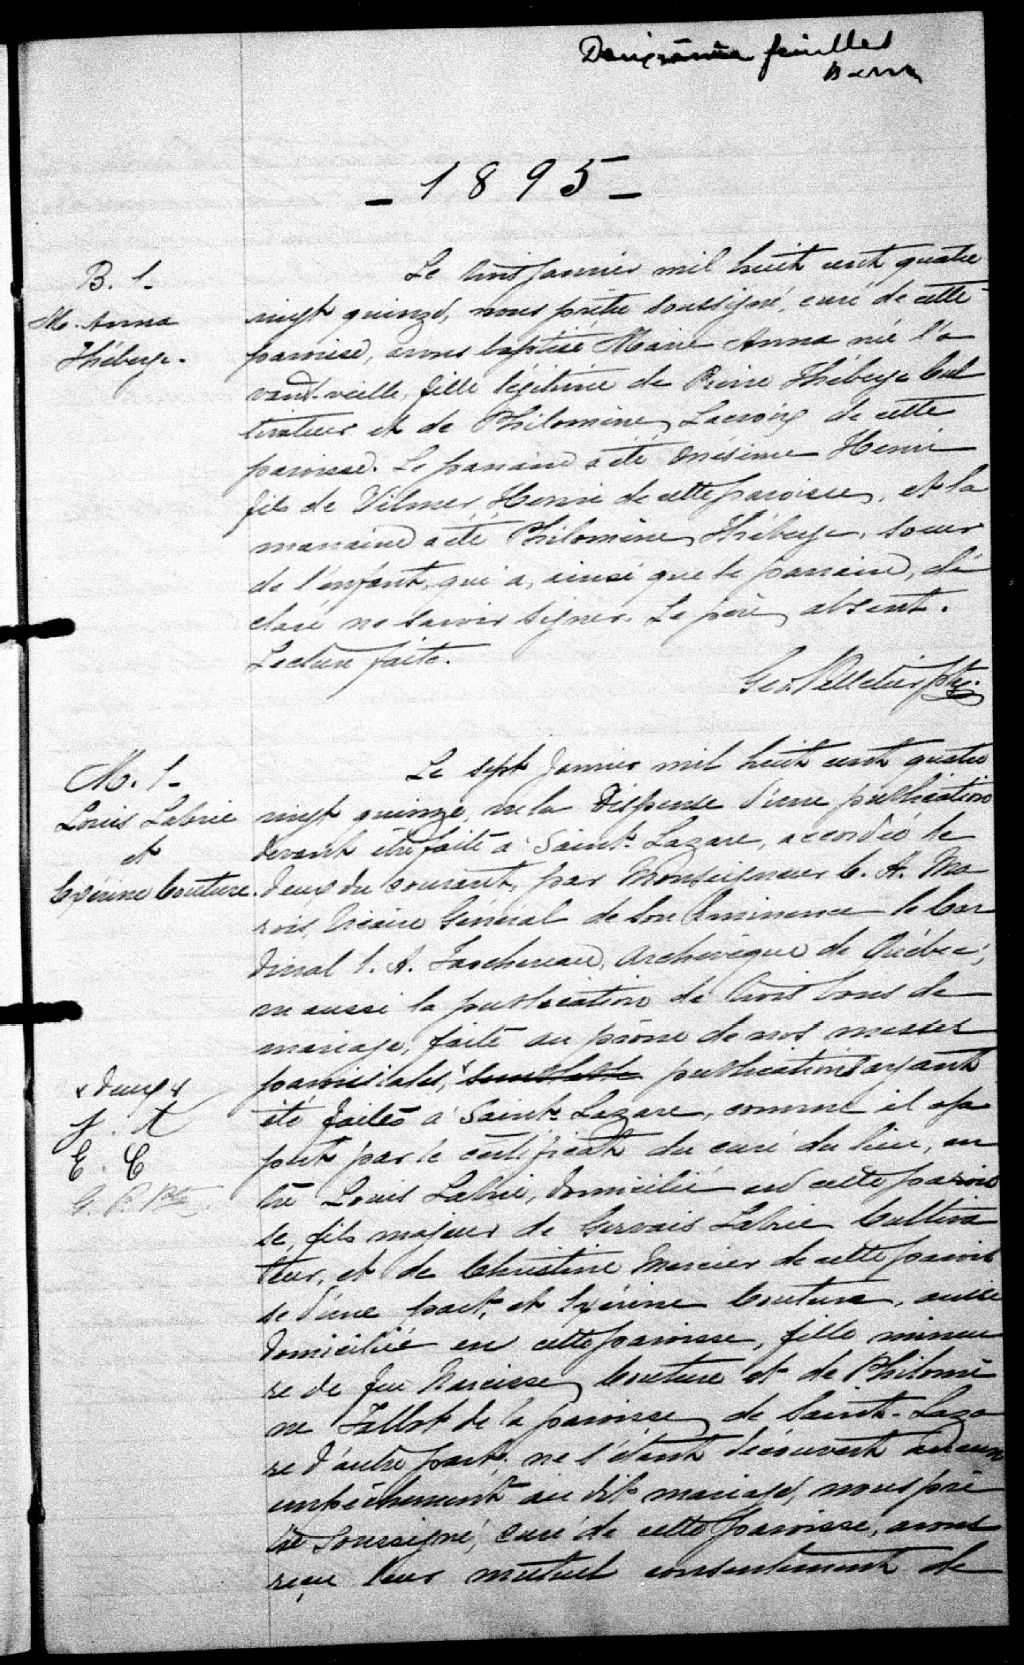 feuillet
- 1895 -
B. 1.
M. Anna
Théberge.
Le trois janvier mil huit cent quatre
vingt quinze, nous prêtre soussigné, curé de cette
paroisse, avons baptisé Marie Anna née l'a
vant-veille, fille légitime de Pierre Théberge Cul
tivateur et de Philomène Lacroix de cette
paroisse. Le parrain a été Onésime Henri
fils de Vilmer Henri de cette paroisse, et la
marraine a été Philomène Théberge, soeur
de l'enfant, qui a, ainsi que le parrain, dé
claré ne savoir signer. Le père absent.
Lecture faite.
Geo. Pelletier Ptre.
M. 1.
Louis Labrie
et
Exérine Couture.
Le sept janvier mil huit cent quatre
vingt quinze, vu la dispense d'une publication
devant être faite à Saint-Lazare, accordée le
deux du courant, par Monseigneur C. A. Ma
rois, Vicaire Général de Son Eminence le Car
dinal E. A. Taschereau, Archevêque de Québec;
vu aussi la publication de trois bans de
mariage, faite au prône de nos messes
paroissiales, publications ayant
été faites à Saint-Lazare, comme il ap
pert par le certificat du curé du lieu, en
tre Louis Labrie, domicilié en cette parois
se, fils majeur de Gervais Labrie Cultiva
teur, et de Christine Mercier de cette parois
se d'une part; et Exérine Couture, aussi
domiciliée en cette paroisse, fille mineu
re de feu Narcisse Couture et de Philomè
ne Talbot de la paroisse de Saint-Laza
re d'autre part; ne s'étant découvert aucun
empêchement au dit mariage, nous prê
tre soussigné, curé de cette paroisse, avons
reçu leur mutuel consentement de
x deux x
E. C
G. P. Ptre